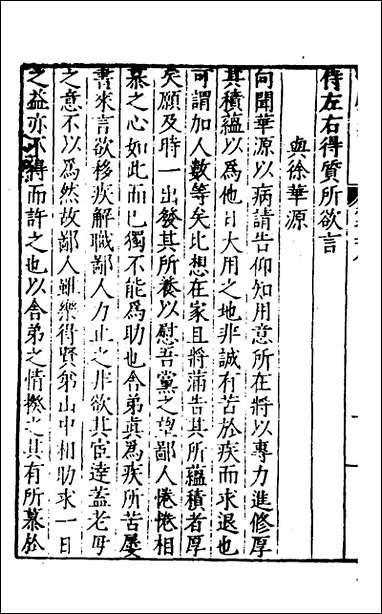 侍左右得質所欲言
與徐華源
向聞華源以病請告仰知用意所在將以專力進修厚
其積蘊以爲他日大用之地非誠有苦於疾而求退也
可謂加人數等矣比想在家且將滿告其所蘊積者厚
矣願及時一出發其所養以慰吾黨之望鄙人惓惓相
慕之心如此而已獨不能爲助也舍弟眞爲疾所苦屢
書來言欲移疾解職鄙人力止之非欲其宦達蓋老母
之意不以爲然故鄙人雖樂得賢弟山中相助求一日
之益亦不得而許之也以舍弟之情揆之其有所慕於